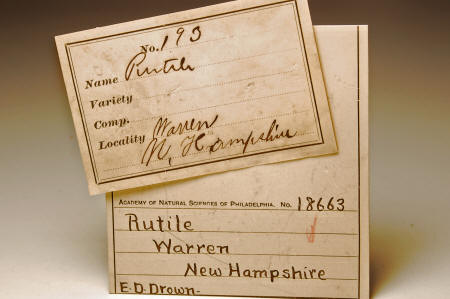 No. 193
Name Rutile
Variety
Comp.
Locality Warren
N. Hampshire
ACADEMY OF NATURAL SCIENCES OF PHILADELPHIA, No. 18663
Rutile
Warren
New Hampshire
E.D. Drown-